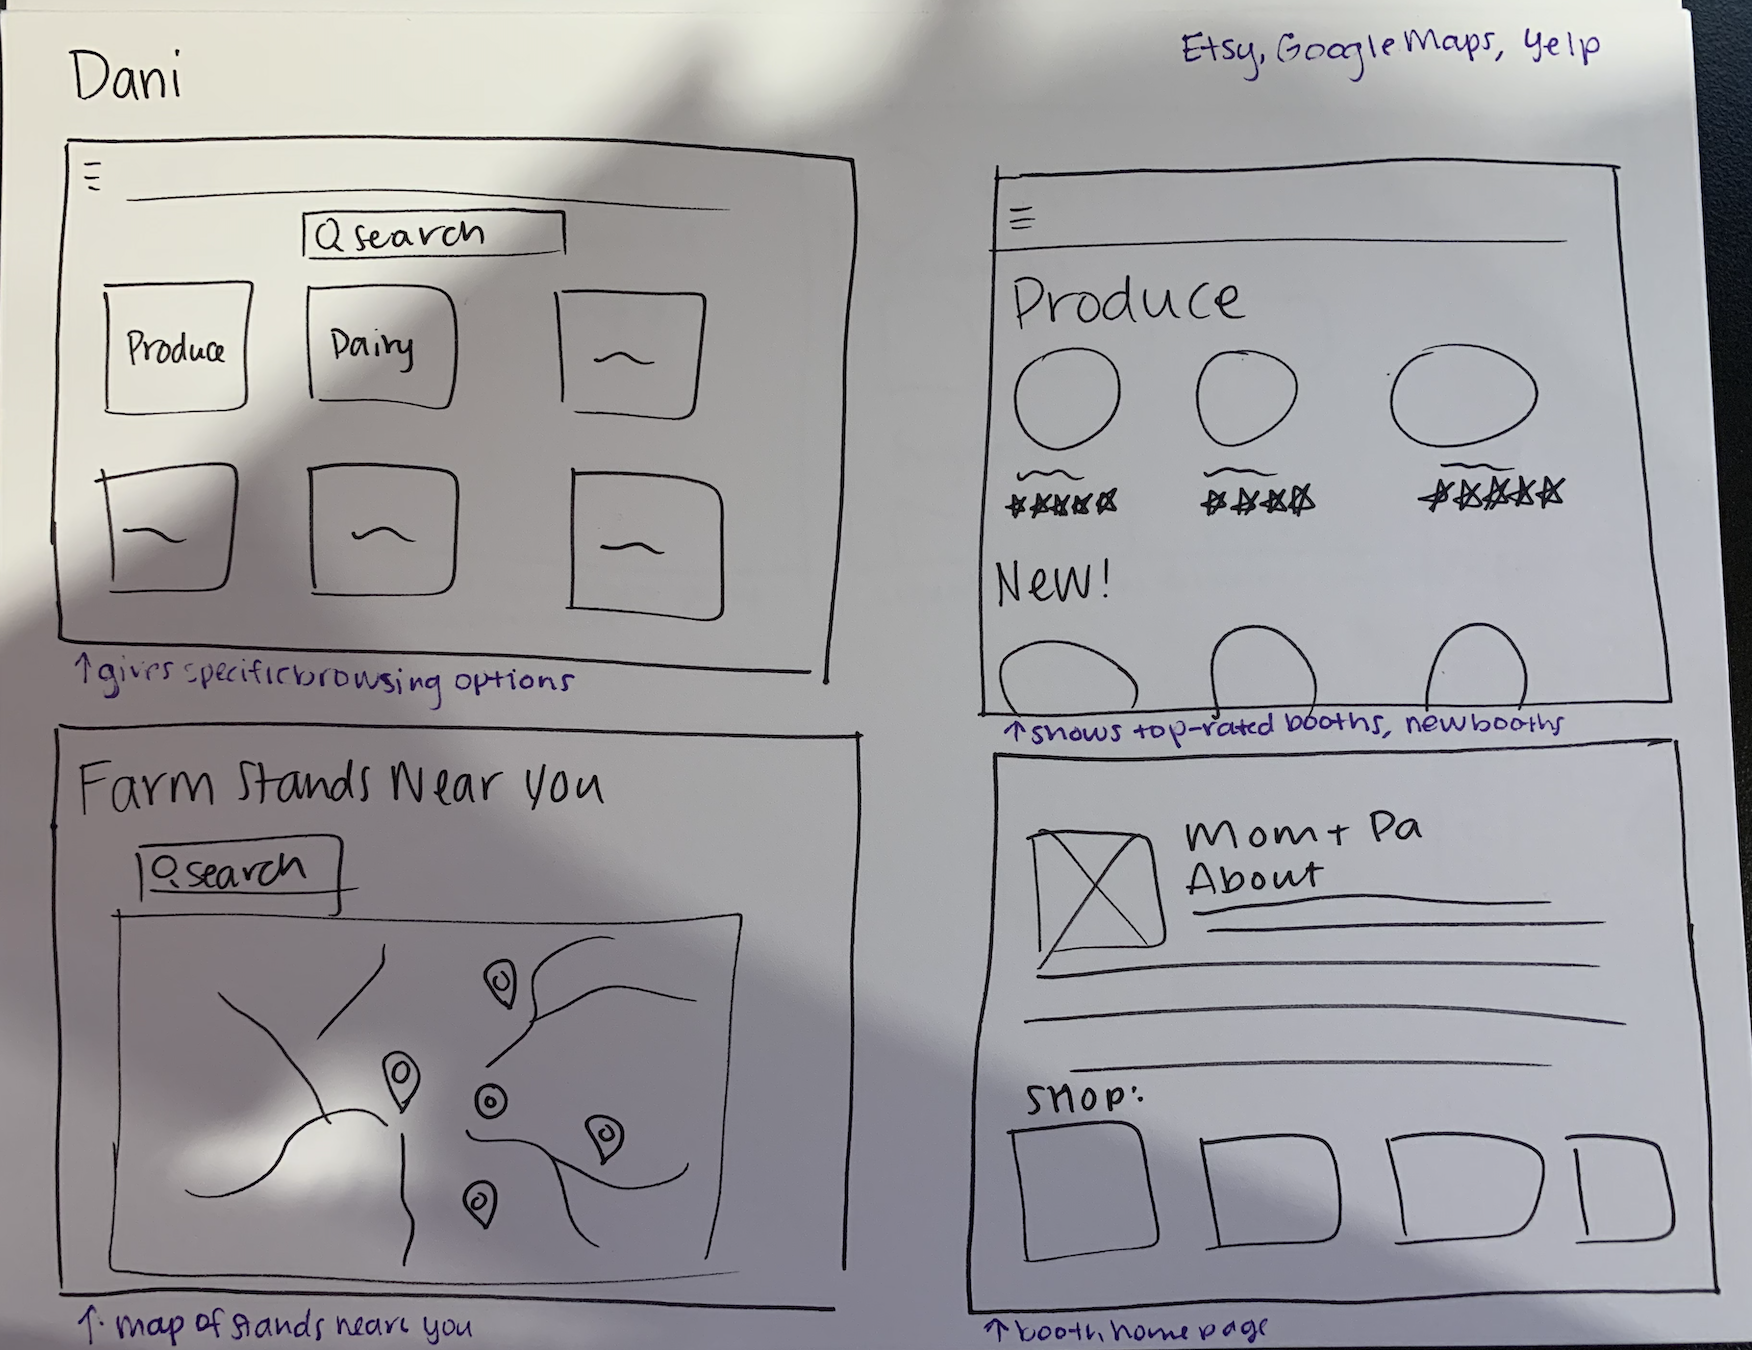 Dani
Etsy, Google Maps, Yelp
search
Produce
Dairy
↑ gives specific browsing options
Produce
New!
↑ shows top-rated booths, new booths
Farm Stands Near You
search
↑ map of stands near you
Mom + Pa
About
Shop:
↑ booth home page